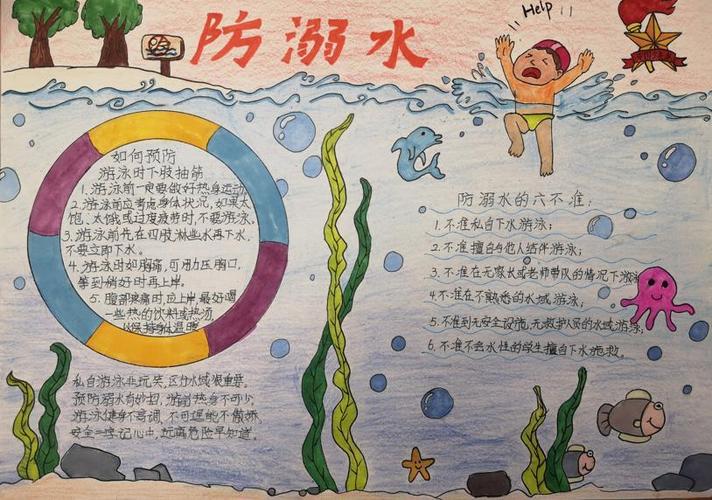 防溺水
Help !!
如何预防
游泳时下肢抽筋
1.游泳前一定要做好热身运动
2.游泳前应考虑身体状况,如果太
饱、太饿或过度疲劳时,不要游泳。
3.游泳前先在四肢淋些水再下水,
不要立即下水。
4.游泳时如胸痛,可用力压胸口,
等到稍好时再上岸。
5.腹部疼痛时,应上岸,最好喝
一些热的饮料或热汤
以保持身体温暖
私自游泳非玩笑,区分水域很重要。
预防溺水有妙招,游前热身不可少。
游泳健身不高调,不可逞能不傲娇
安全一字记心中,远离危险早知道。
防溺水的六不准:
1.不准私自下水游泳;
2.不准擅自与他人结伴游泳;
3.不准在无家长或老师带队的情况下游泳
4.不准在不熟悉的水域游泳;
5.不准到无安全设施、无救护人员的水域游泳;
6.不准不会水性的学生擅自下水施救。